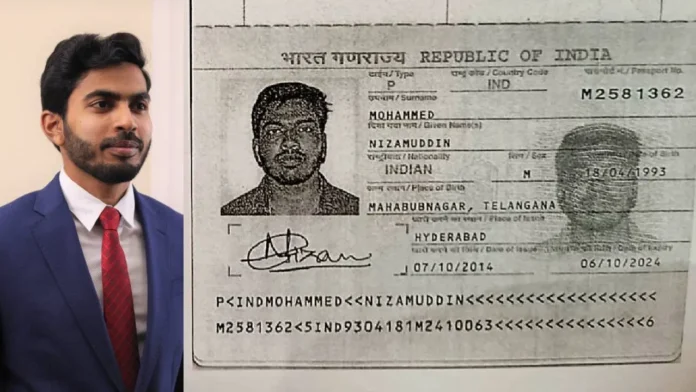 भारत गणराज्य REPUBLIC OF INDIA
टाईप/Type
P
राष्ट्र कोड / Country Code
IND
पासपोर्ट नं./ Passport No.
M2581362
उपनाम / Surname
MOHAMMED
दिया गया नाम / Given Name(s)
NIZAMUDDIN
राष्ट्रीयता / Nationality
INDIAN
लिंग / Sex
M
of Birth
18/04/1993
जन्म स्थान / Place of Birth
MAHABUBNAGAR, TELANGANA
जारी करने का स्थान / Place of Issue
HYDERABAD
जारी करने की तिथि / Date of Issue
07/10/2014
Date of Expiry
06/10/2024
P<INDMOHAMMED<<NIZAMUDDIN<<<<<<<<<<<<<<<<<<<
M2581362<5IND9304181M2410063<<<<<<<<<<<<<<<6